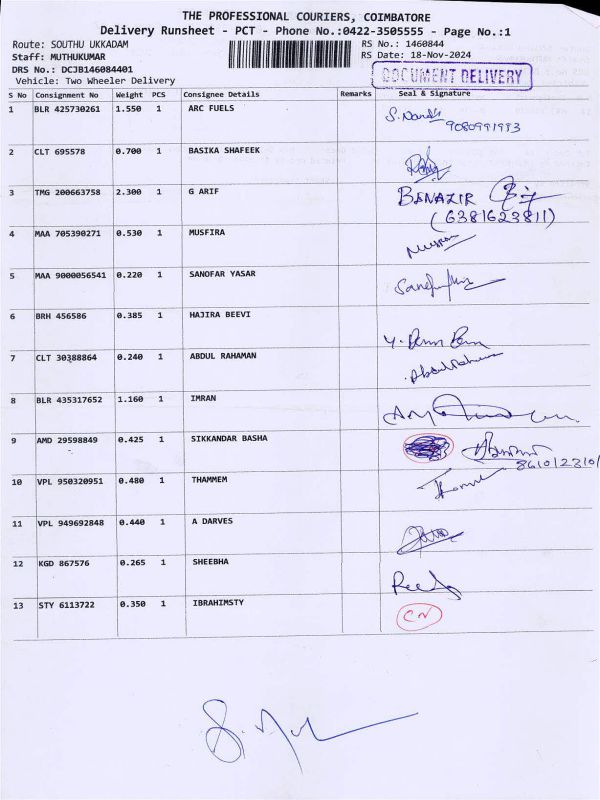 THE PROFESSIONAL COURIERS, COIMBATORE
Delivery Runsheet - PCT - Phone No.:0422-3505555 - Page No.:1
Route: SOUTHU UKKADAM RS No.: 1460844
Staff: MUTHUKUMAR RS Date: 18-Nov-2024
DRS No.: DCJB146084401 DOCUMENT DELIVERY
Vehicle: Two Wheeler Delivery
S No Consignment No Weight PCS Consignee Details Remarks Seal & Signature
1 BLR 425730261 1.550 1 ARC FUELS
9080991993
2 CLT 695578 0.700 1 BASIKA SHAFEEK
3 TMG 200663758 2.300 1 G ARIF BENAZIR
(6381623811)
4 MAA 705390271 0.530 1 MUSFIRA
5 MAA 9000056541 0.220 1 SANOFAR YASAR
6 BRH 456586 0.385 1 HAJIRA BEEVI
7 CLT 30388864 0.240 1 ABDUL RAHAMAN
Abdul Rahaman
8 BLR 435317652 1.160 1 IMRAN
9 AMD 29598849 0.425 1 SIKKANDAR BASHA
10 VPL 950320951 0.480 1 THAMMEM
11 VPL 949692848 0.440 1 A DARVES
12 KGD 867576 0.265 1 SHEEBHA
13 STY 6113722 0.350 1 IBRAHIMSTY CN